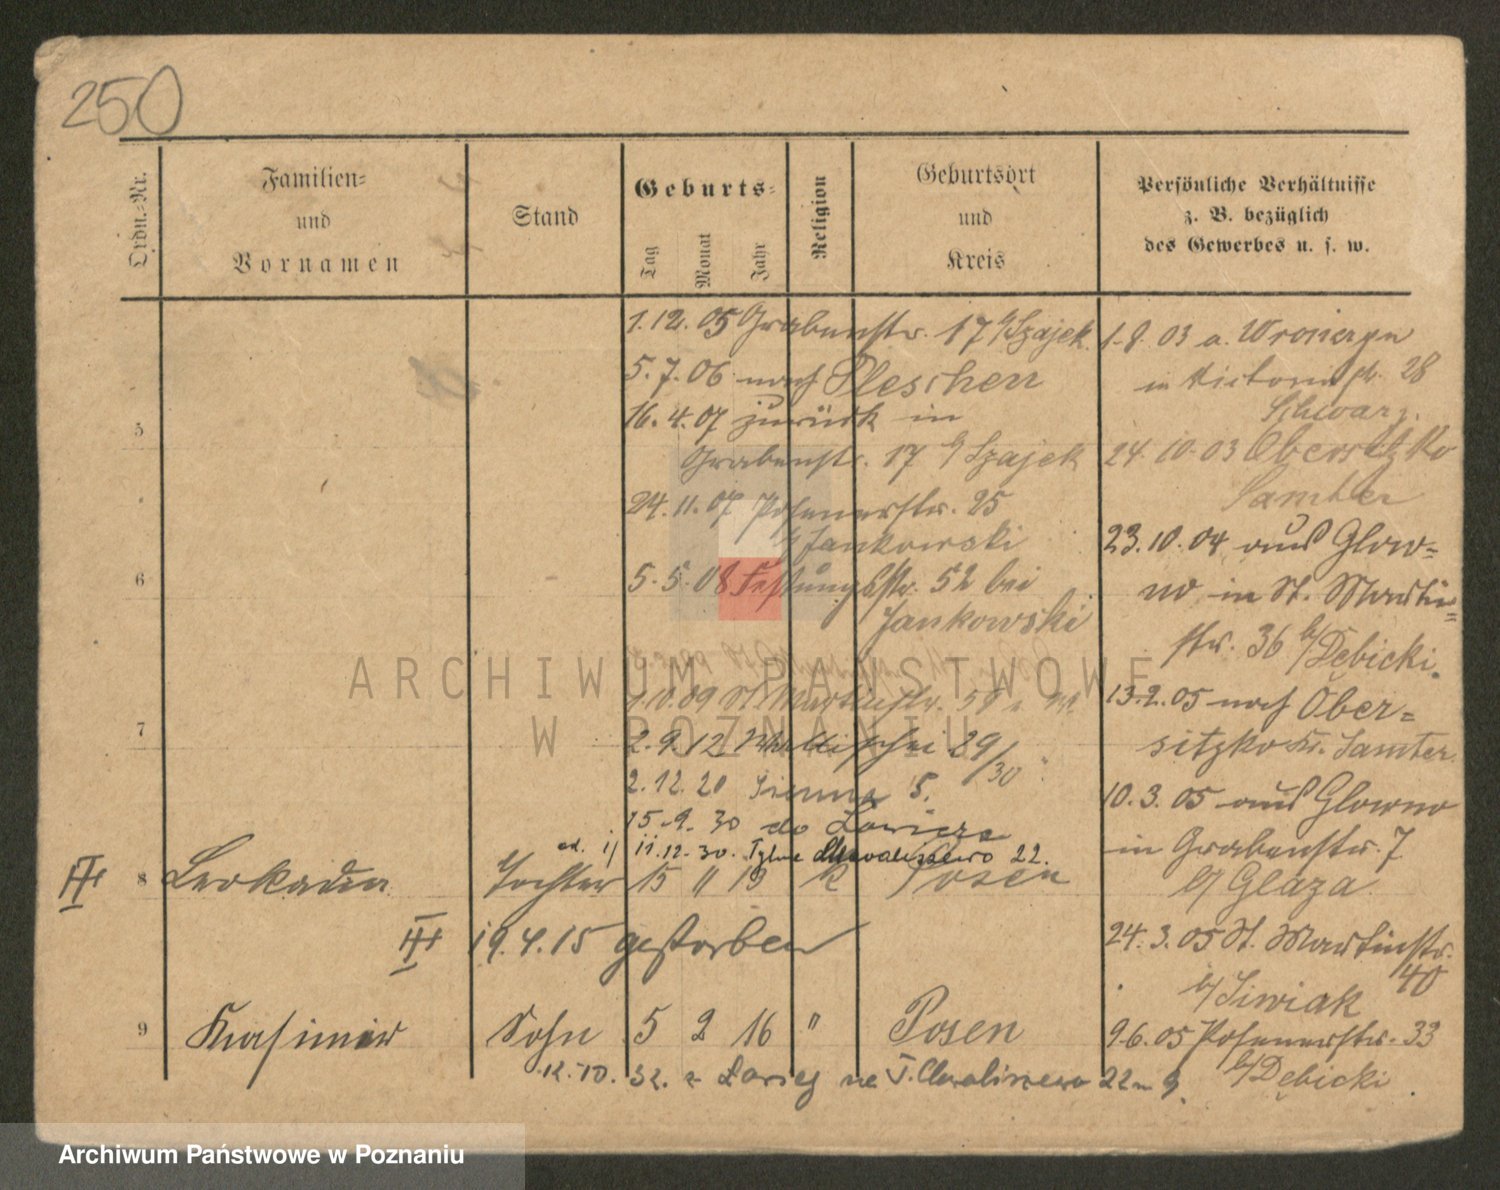 250
Ordn.-Nr.
Familien-
und
Vornamen
Stand
Geburts-
Tag
Monat
Jahr
Religion
Geburtsort
und
Kreis
Persönliche Verhältnisse
z. B. bezüglich
des Gewerbes u. s. w.
1.12.05 Grabenstr. 17 b/Szajek
5.7.06 nach Pleschen
16.4.07 zurück in
5
Grabenstr. 17 b/Szajek
24.11.07 Posenerstr. 25
b/Jankowski
6
5.5.08 Festungsstr. 52 bei
Jankowski
1.10.09 St. Martinstr. 58
7
2.9.12 Wallischei 29/30
2.12.20 5.
15.9.30 do
11.12.30. 22.
8 Leokadia Tochter 15 " 15 k Posen
19.4.15 gestorben
9 Kasimir Sohn 5 2 16 " Posen
12.10.32. z na 22 m 9.
1.9.03 a. Wronczyn
in Victoriastr. 28
Schwarz.
24.10.03 Obersitzko
Samter
23.10.04 aus Glow=
no in St. Martin=
str. 36 b/Dębicki.
13.2.05 nach Ober=
sitzko Kr. Samter.
10.3.05 aus Glowno
in Grabenstr. 7
b/Glaza
24.3.05 St. Martinstr.
40
b/Siwiak
9.6.05 Posenerstr. 33
b/Dębicki
ARCHIWUM PAŃSTWOWE
W POZNANIU
Archiwum Państwowe w Poznaniu